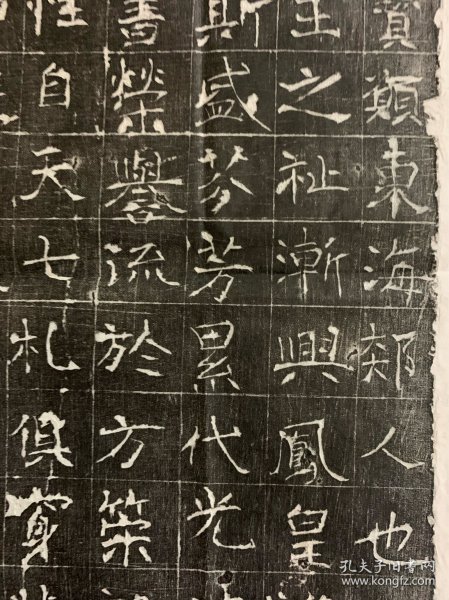 東海郯人也
王之祉漸興鳳皇
斯盛芬芳累代光
書榮譽流於方策
性自天七札俱穿
孔夫子旧书网
www.kongfz.com